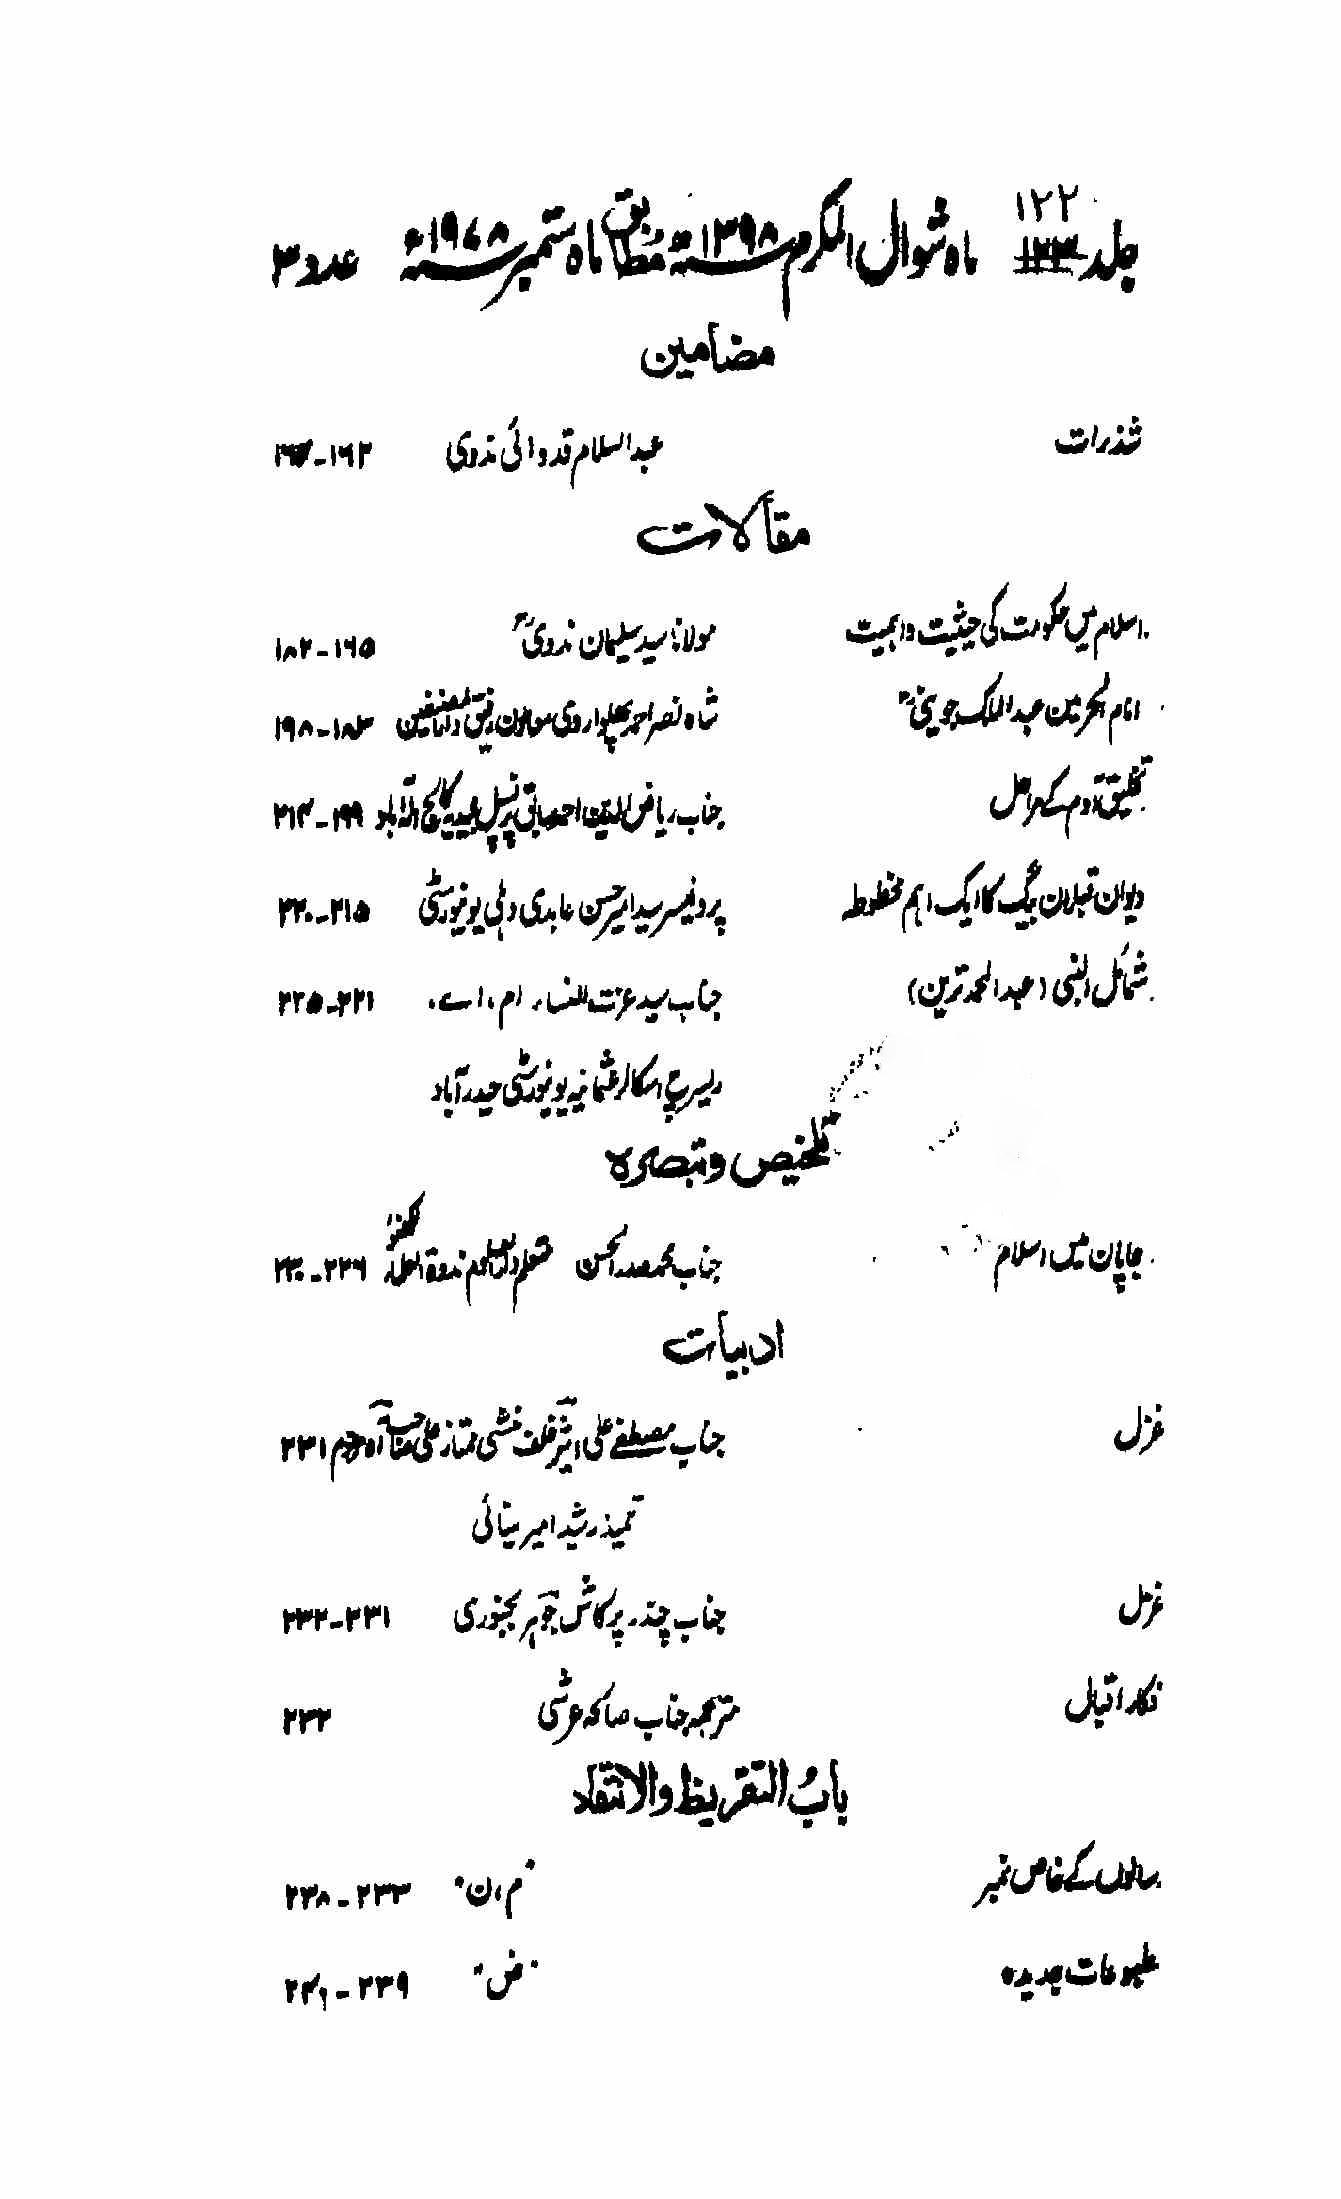 ۱۲۲
جلد ۱۲۳ ماہ شوال المکرم ۱۳۹۸ھ مطابق ماہ ستمبر ۱۹۷۸ء عدد ۳
مضامین
شذرات عبدالسلام قدوائی ندوی ۱۶۲-۱۶۴
مقالات
اسلام میں حکومت کی حیثیت و اہمیت مولانا سید سلیمان ندویؒ ۱۶۵-۱۸۲
امام الحرمین عبدالملک جوینیؒ شاہ نصر احمد پھلواروی معاون رفیق دارالمصنفین ۱۸۳-۱۹۸
تخلیق آدم کے مراحل جناب ریاض الدین احمد سابق پرنسپل مجیدیہ کالج الہ آباد ۱۹۹-۲۱۴
دیوان قبلان بیگ کا ایک اہم مخطوطہ پروفیسر سید امیر حسن عابدی دہلی یونیورسٹی ۲۱۵-۲۲۰
شمائل النبی (عبدالمحمد ترین) جناب سید عزت النساء ام، اے، ۲۲۱-۲۲۵
ریسرچ اسکالر عثمانیہ یونیورسٹی حیدرآباد
تلخیص و تبصرہ
جاپان میں اسلام جناب محمد صدر الحسن متعلم دارالعلوم ندوۃ العلماء لکھنؤ ۲۲۶-۲۳۰
ادبیات
غزل جناب مصطفےٰ علی اثیر خلف منشی ممتاز علی صاحب آہ مرحوم ۲۳۱
تلمیذ رشید امیر مینائی
غزل جناب چندر پرکاش جوہر بجنوری ۲۳۱-۲۳۲
افکار اقبال مترجمہ جناب صالحہ عرشی ۲۳۲
بابُ التقریظ والانتقاد
رسالوں کے خاص نمبر "م، ن" ۲۳۳-۲۳۸
مطبوعات جدیدہ "ض" ۲۳۹-۲۴۱